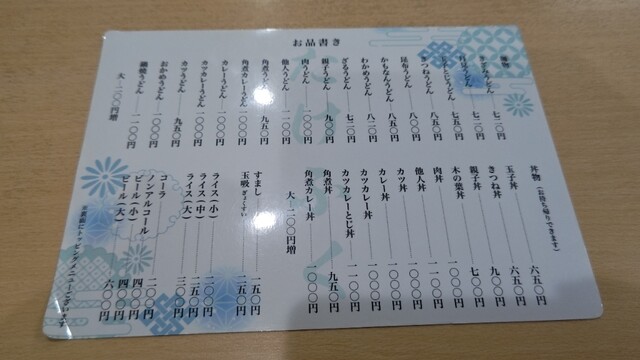 お品書き
麺物
きざみうどん 七二〇円
たぬきうどん 七二〇円
七五〇円
きつねうどん 八五〇円
昆布うどん 八〇〇円
かもなんうどん 八五〇円
わかめうどん 八二〇円
ざるうどん 七二〇円
親子うどん 九〇〇円
肉うどん 一〇〇〇円
他人うどん 一一〇〇円
角煮うどん 九五〇円
角煮カレーうどん 一〇〇〇円
カレーうどん 一〇〇〇円
カツカレーうどん 一〇〇〇円
カツうどん 九五〇円
おかめうどん 一〇〇〇円
鍋焼うどん 一一〇〇円
大 一二〇〇円増
丼物(お持ち帰りできます)
玉子丼 六五〇円
きつね丼 六五〇円
親子丼 九〇〇円
木の葉丼 七〇〇円
肉丼 一〇〇〇円
他人丼 一一〇〇円
カツ丼 一〇〇〇円
カレー丼 一〇〇〇円
カツカレー丼 一〇〇〇円
カツカレーとじ丼 一一〇〇円
角煮丼 九五〇円
角煮カレー丼 一〇〇〇円
大 一二〇〇円増
すまし 一五〇円
玉吸 ぎょくすい 二五〇円
ライス(小) 二〇〇円
ライス(中) 二五〇円
ライス(大) 三〇〇円
コーラ 二〇〇円
ノンアルコール 四〇〇円
ビール(小) 四〇〇円
ビール(大) 六〇〇円